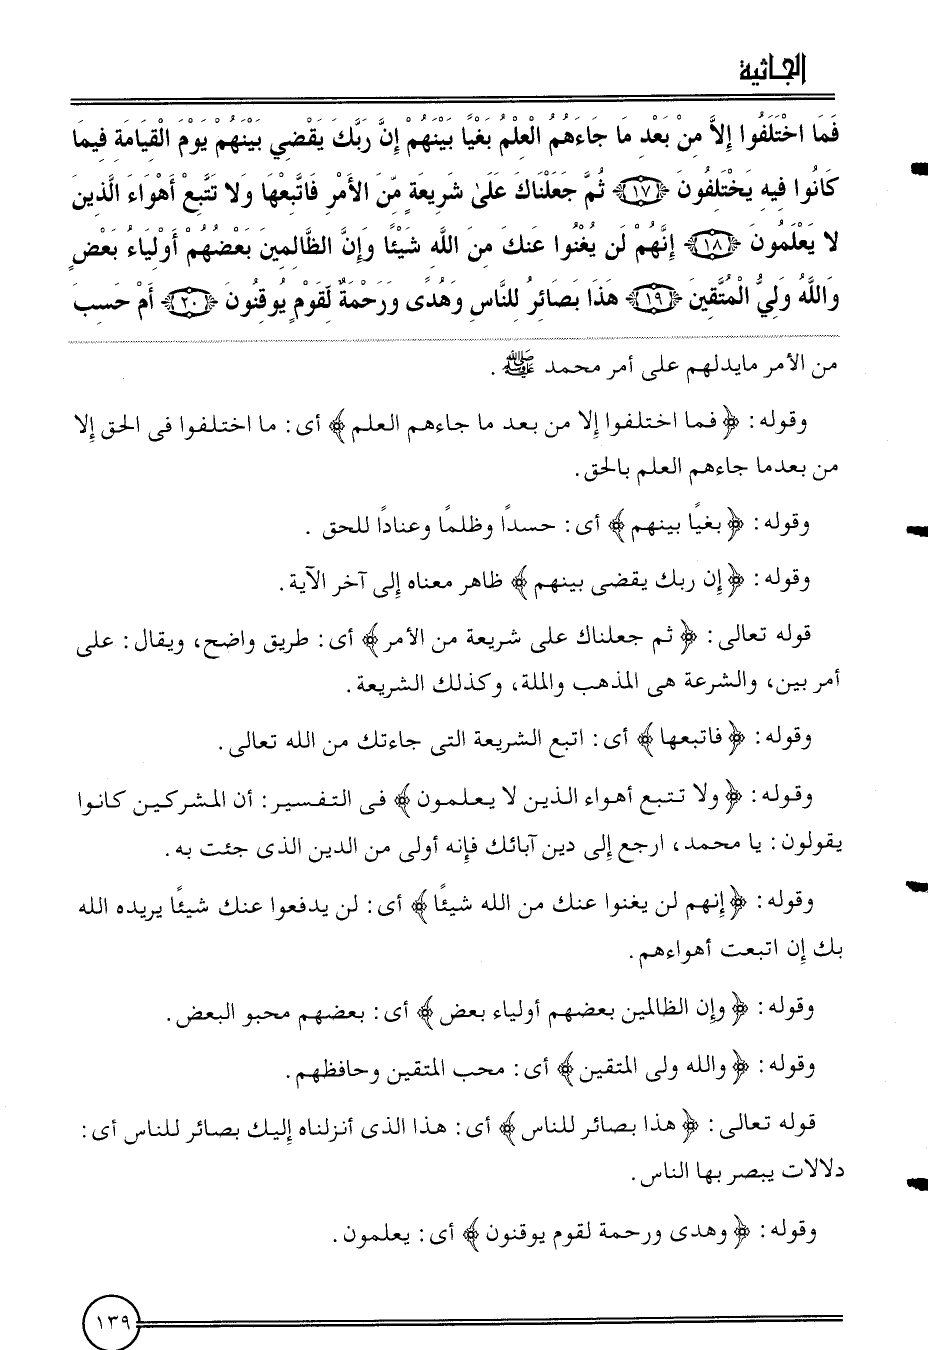 الجاثية
فَمَا اخْتَلَفُوا إِلاَّ مِنْ بَعْدِ مَا جَاءَهُمُ الْعِلْمُ بَغْيًا بَيْنَهُمْ إِنَّ رَبَّكَ يَقْضِي بَيْنَهُمْ يَوْمَ الْقِيَامَةِ فِيمَا
كَانُوا فِيهِ يَخْتَلِفُونَ ﴿١٧﴾ ثُمَّ جَعَلْنَاكَ عَلَىٰ شَرِيعَةٍ مِّنَ الأَمْرِ فَاتَّبِعْهَا وَلا تَتَّبِعْ أَهْوَاءَ الَّذِينَ
لا يَعْلَمُونَ ﴿١٨﴾ إِنَّهُمْ لَن يُغْنُوا عَنكَ مِنَ اللَّهِ شَيْئًا وَإِنَّ الظَّالِمِينَ بَعْضُهُمْ أَوْلِيَاءُ بَعْضٍ
وَاللَّهُ وَلِيُّ الْمُتَّقِينَ ﴿١٩﴾ هَذَا بَصَائِرُ لِلنَّاسِ وَهُدًى وَرَحْمَةٌ لِّقَوْمٍ يُوقِنُونَ ﴿٢٠﴾ أَمْ حَسِبَ
من الأمر مايدلهم على أمر محمد ﷺ .
وقوله : ﴿ فما اختلفوا إلا من بعد ما جاءهم العلم ﴾ أى : ما اختلفوا فى الحق إلا
من بعدما جاءهم العلم بالحق.
وقوله : ﴿ بغيًا بينهم ﴾ أى : حسدًا وظلمًا وعنادًا للحق .
وقوله : ﴿ إن ربك يقضى بينهم ﴾ ظاهر معناه إلى آخر الآية .
قوله تعالى : ﴿ ثم جعلناك على شريعة من الأمر ﴾ أى : طريق واضح، ويقال : على
أمر بين، والشرعة هى المذهب والملة، وكذلك الشريعة .
وقوله : ﴿ فاتبعها ﴾ أى : اتبع الشريعة التى جاءتك من الله تعالى .
وقوله : ﴿ ولا تتبع أهواء الذين لا يعلمون ﴾ فى التفسير : أن المشركين كانوا
يقولون : يا محمد، ارجع إلى دين آبائك فإنه أولى من الدين الذى جئت به .
وقوله : ﴿ إنهم لن يغنوا عنك من الله شيئًا ﴾ أى : لن يدفعوا عنك شيئًا يريده الله
بك إن اتبعت أهواءهم .
وقوله : ﴿ وإن الظالمين بعضهم أولياء بعض ﴾ أى : بعضهم محبو البعض .
وقوله : ﴿ والله ولى المتقين ﴾ أى : محب المتقين وحافظهم .
قوله تعالى : ﴿ هذا بصائر للناس ﴾ أى : هذا الذى أنزلناه إليك بصائر للناس أى :
دلالات يبصر بها الناس .
وقوله : ﴿ وهدى ورحمة لقوم يوقنون ﴾ أى : يعلمون .
١٣٩